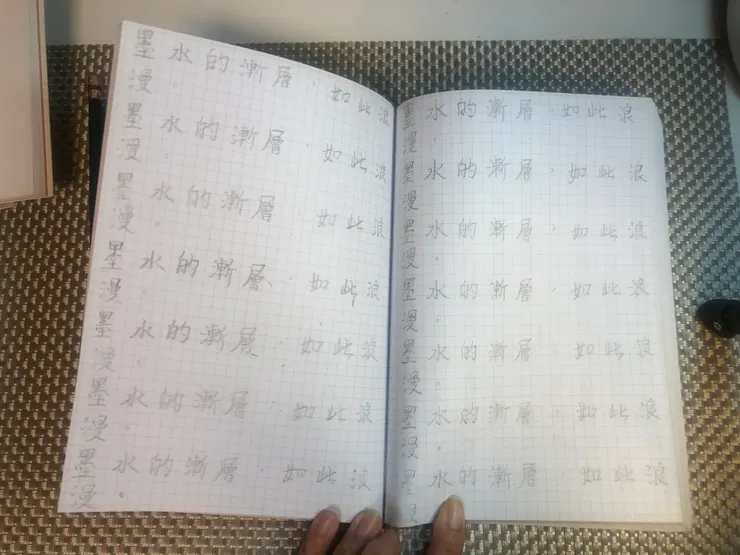 墨水的漸層，如此浪
漫。
墨水的漸層，如此浪
漫。
墨水的漸層，如此浪
漫。
墨水的漸層，如此浪
漫。
墨水的漸層，如此浪
漫。
墨水的漸層，如此浪
漫。
墨水的漸層，如此浪
漫。
墨水的漸層，如此浪
漫。
墨水的漸層，如此浪
漫。
墨水的漸層，如此浪
漫。
墨水的漸層，如此浪
漫。
墨水的漸層，如此浪
漫。
墨水的漸層，如此浪
漫。
墨水的漸層，如此浪